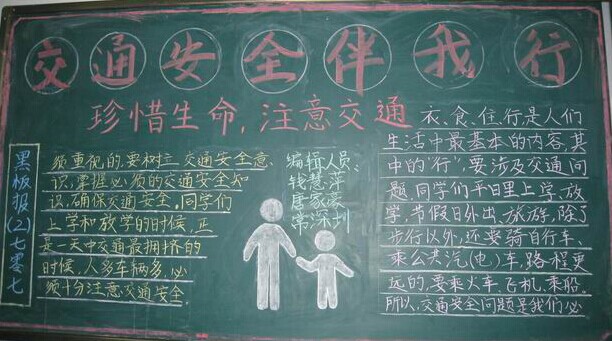 交通安全伴我行
珍惜生命,注意交通
衣、食、住、行是人们
生活中最基本的内容,其
中的“行”,要涉及交通问
题.同学们平日里上学、放
学,节假日外出、旅游,除了
步行以外,还要骑自行车、
乘公共汽(电)车,路程更
远的,要乘火车、飞机、乘船。
所以,交通安全问题是我们必
须重视的,要树立交通安全意
识,掌握必须的交通安全知
识,确保交通安全。同学们
上学和放学的时候,正
是一天中交通最拥挤的
时候,人多车辆多,必
须十分注意交通安全.
编辑人员:
钱慧萍
唐家濠
常深圳
黑板报(2)七零七